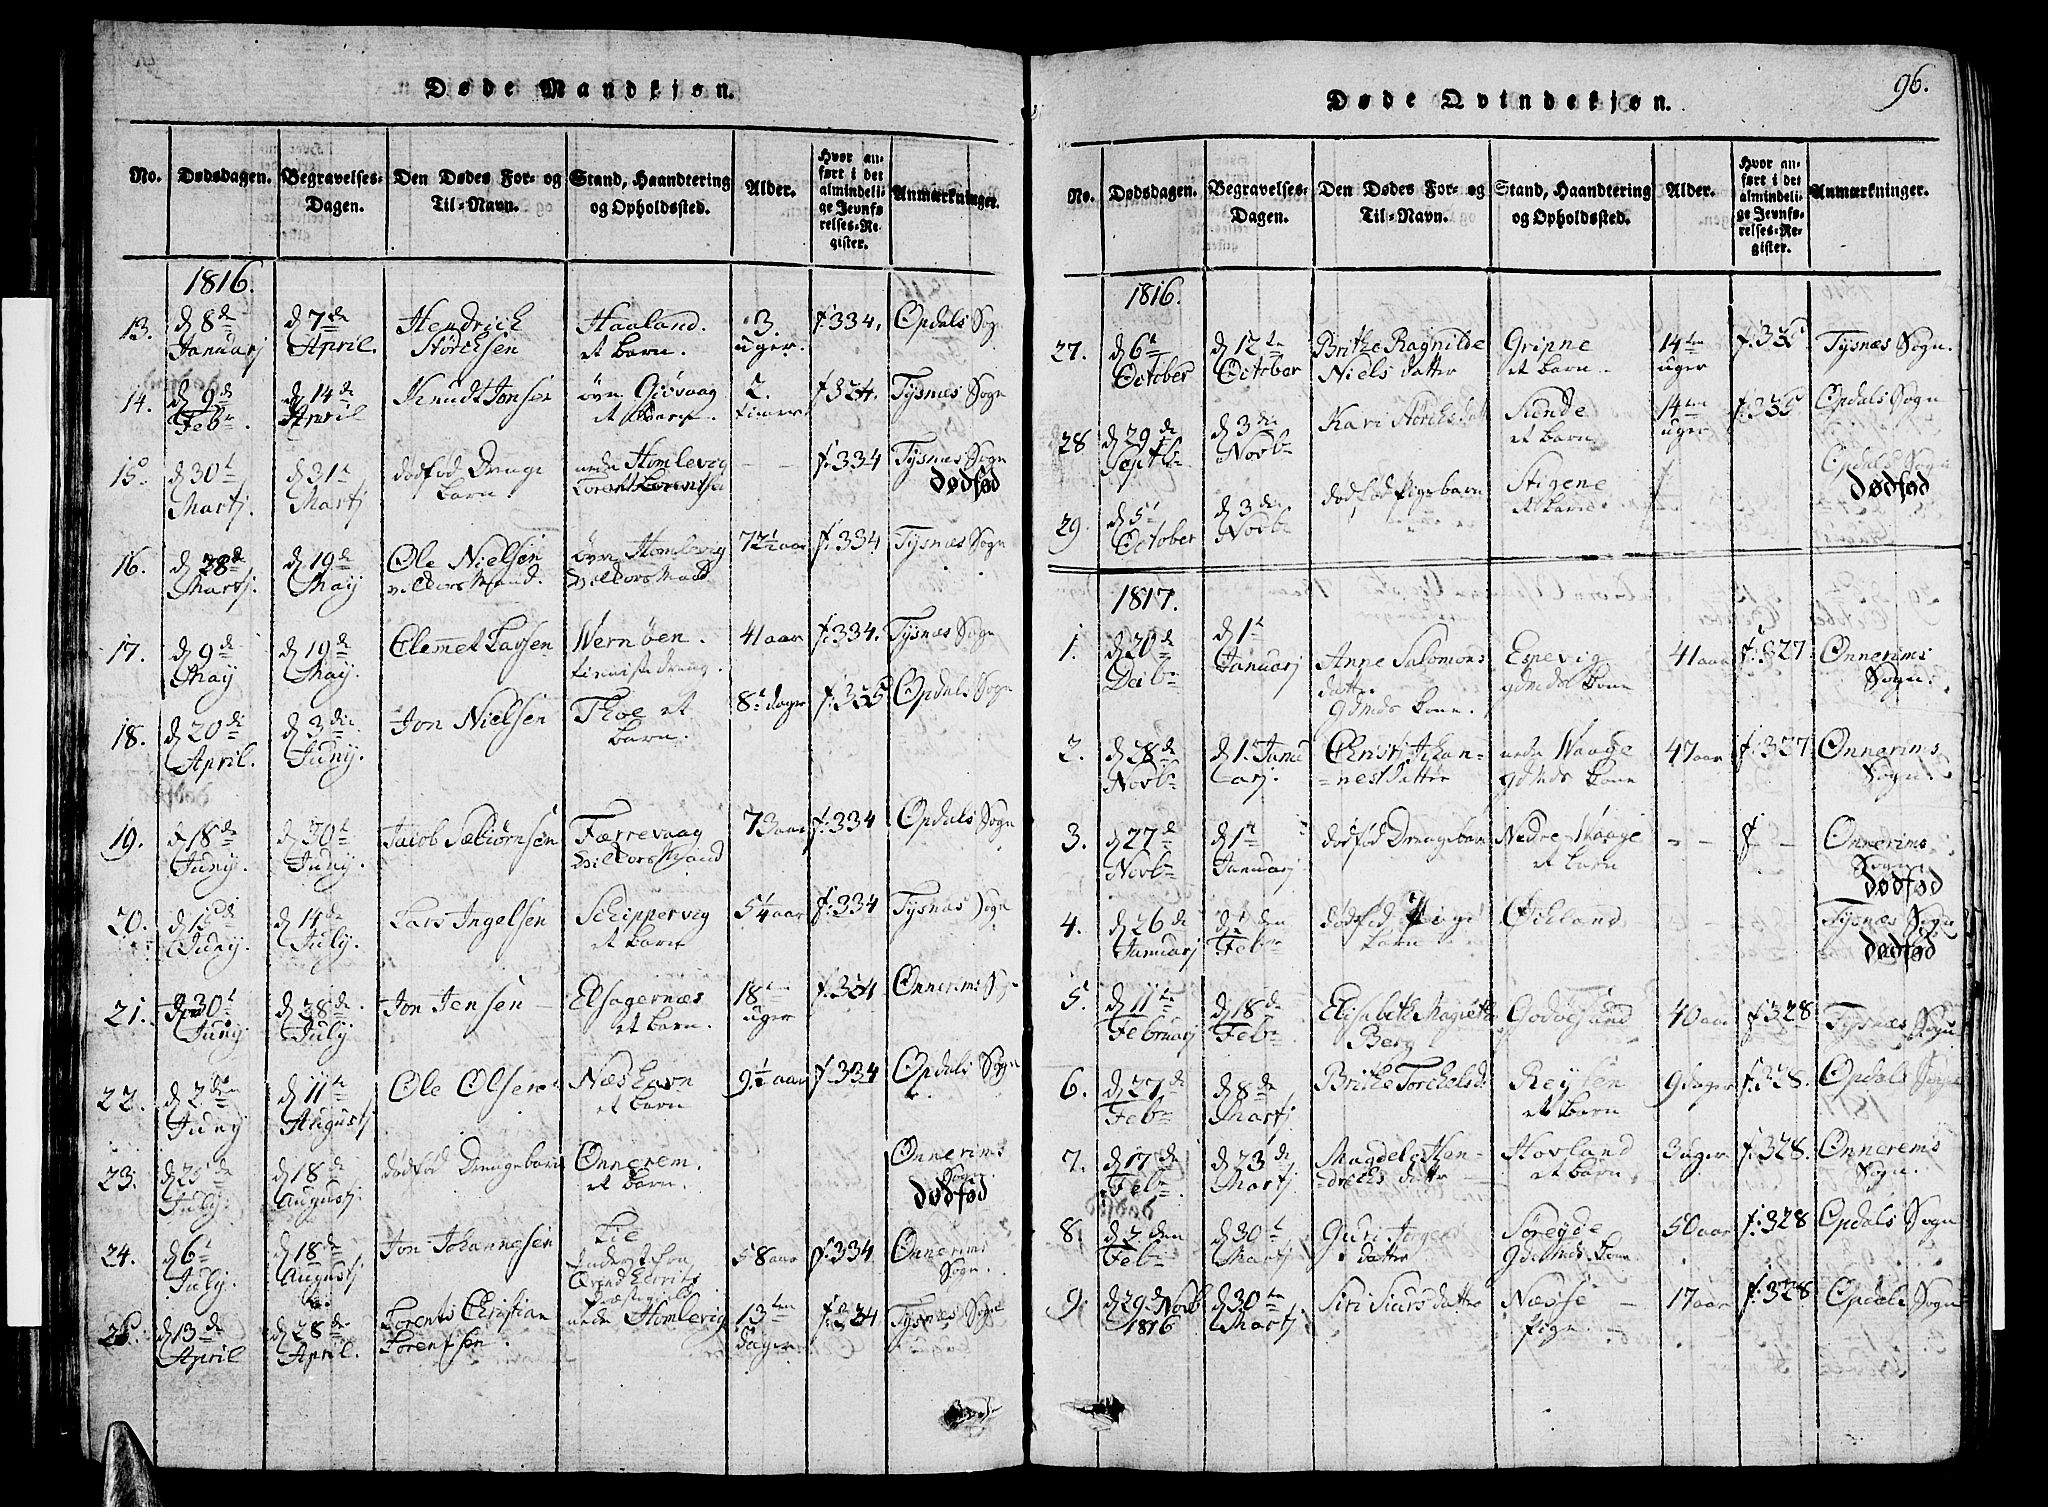 Døde Mandkjøn.
No. Dødsdagen. Begravelses-Dagen. Den Dødes For- og Til-Navn. Stand, Haandtering og Opholdssted. Alder. Hvor anført i det almindelige Jevnførelses-Register. Anmærkninger.
1816.
13. d 8de Januarj d 7de April. Hendrick Størchsen Haaland. et barn. 3. uger. f. 334. Opdals Sogn
14. d 9de Febr. d 14de April Knudt Jonsen øvre Giövaag et barn. 2. timer f. 324. Tysnæs Sogn
15. d 30t Martj. d 31t Martj dødfød Drenge barn nedre Homlevig Lorents Lorentsen - - f. 334 Tysnæs Sogn dødfød
16. d 28de Martj. d 19de May Ole Nielsen vilkors Mand. øvre Homlevig vilkors Mand 72½ aar f. 334 Tysnæs Sogn
17. d 9de May d 19de May. Clemmet Larsen Wernöen. 41 aar f. 334. Tysnæs Sogn
18. d 20de April. d 3die Juny. Jon Nielsen Thoe et barn. 8t dage f. 335 Opdals Sogn
19. d 18de Juny. d 30t Juny. Jacob Sæbiörnsen Færrevaag vilkors Mand 73 aar f. 334 Opdals Sogn
20. Juny. d 14de July. Lars Ingelsen Schippervig et barn 5¼ aar f. 334 Tysnæs Sogn
21. d 30t Juny d 28de July Jon Jensen Elsagernæs et barn. 18ten uger f. 334 Onnerims Sogn
22. d 2den Juny d 11te Augustj Ole Olsen Næshavn et barn 9½ aar f. 334 Opdals Sogn
23. d 25de July. d 18de Augustj. dødfød Drengebarn Onnerem. et barn. Onnerims Sogn. dødfød
24. d 6t July. d 18de Augustj Jon Johannesen Lie 58 aar f. 334 Onnerims Sogn.
25. d 13de April d 28de April. Lorents Christian Lorentsen. nedre Homlevig 13ten dager f. 334 Tysnæs Sogn
96.
Døde Qvindekjøn.
No. Dødsdagen. Begravelses-Dagen. Den Dødes For- og Til-Navn. Stand, Haandtering og Opholdssted. Alder. Hvor anført i det almindelige Jevnførelses-Register. Anmærkninger.
1816.
27. d 6t October d 12te October Brithe Ragnilde Niels datter Gripne et barn. 14ten uger f. 335 Tysnæs Sogn.
28 d 29de Septbr d 3die Novbr Kari Størchsdatt Sunde et barn 14ten uger f. 335 Opdals Sogn
29. d 5t October d 3die Novbr dødfød Pigebarn Stigene et barn Opdals Sogn dødfød
1817.
1. d 20de Decbr d 1t Januarj Anne Salomons datter gdmds kone. Espevig gdmds kone 41 aar f. 327 Onnerims Sogn.
2. d 28de Novbr d 1t Januarj. Christj Johannesdatter nedre Waage gdmds kone 47 aar f. 327 Onnerims Sogn.
3. d 27de Novbr d 1t Januarj dødfød Drengebarn Nedre Waage et barn - - f - Onnerims Sogn. dødfød
4. d 26de Januarj d 2den Febr dødfød Pige barn Økland Tysnæs Sogn dødfød
5. d 11te Februarj d 18de Febr Elisabeth Magrete Berg Godøesund 40 aar f 328 Tysnæs Sogn
6. d 27de Febr d 8de Martj Brithe Torchelsd. Reysen et barn 9 dager f. 328. Opdals Sogn
7. d 17de Febr. d 23de Martj Magdele Hendrechs datter Hovland et barn 3 uger f. 328. Onnerems Sogn.
8. d 2den Febr d 30t Martj Guri Jørgens datter Søreyde Gdemds kone 50 aar f. 328 Opdals Sogn
9. d 29de Novb 1816 d 30te Martj Siri Siurs datter Næsse pige. 17 aar f. 328 Opdals Sogn